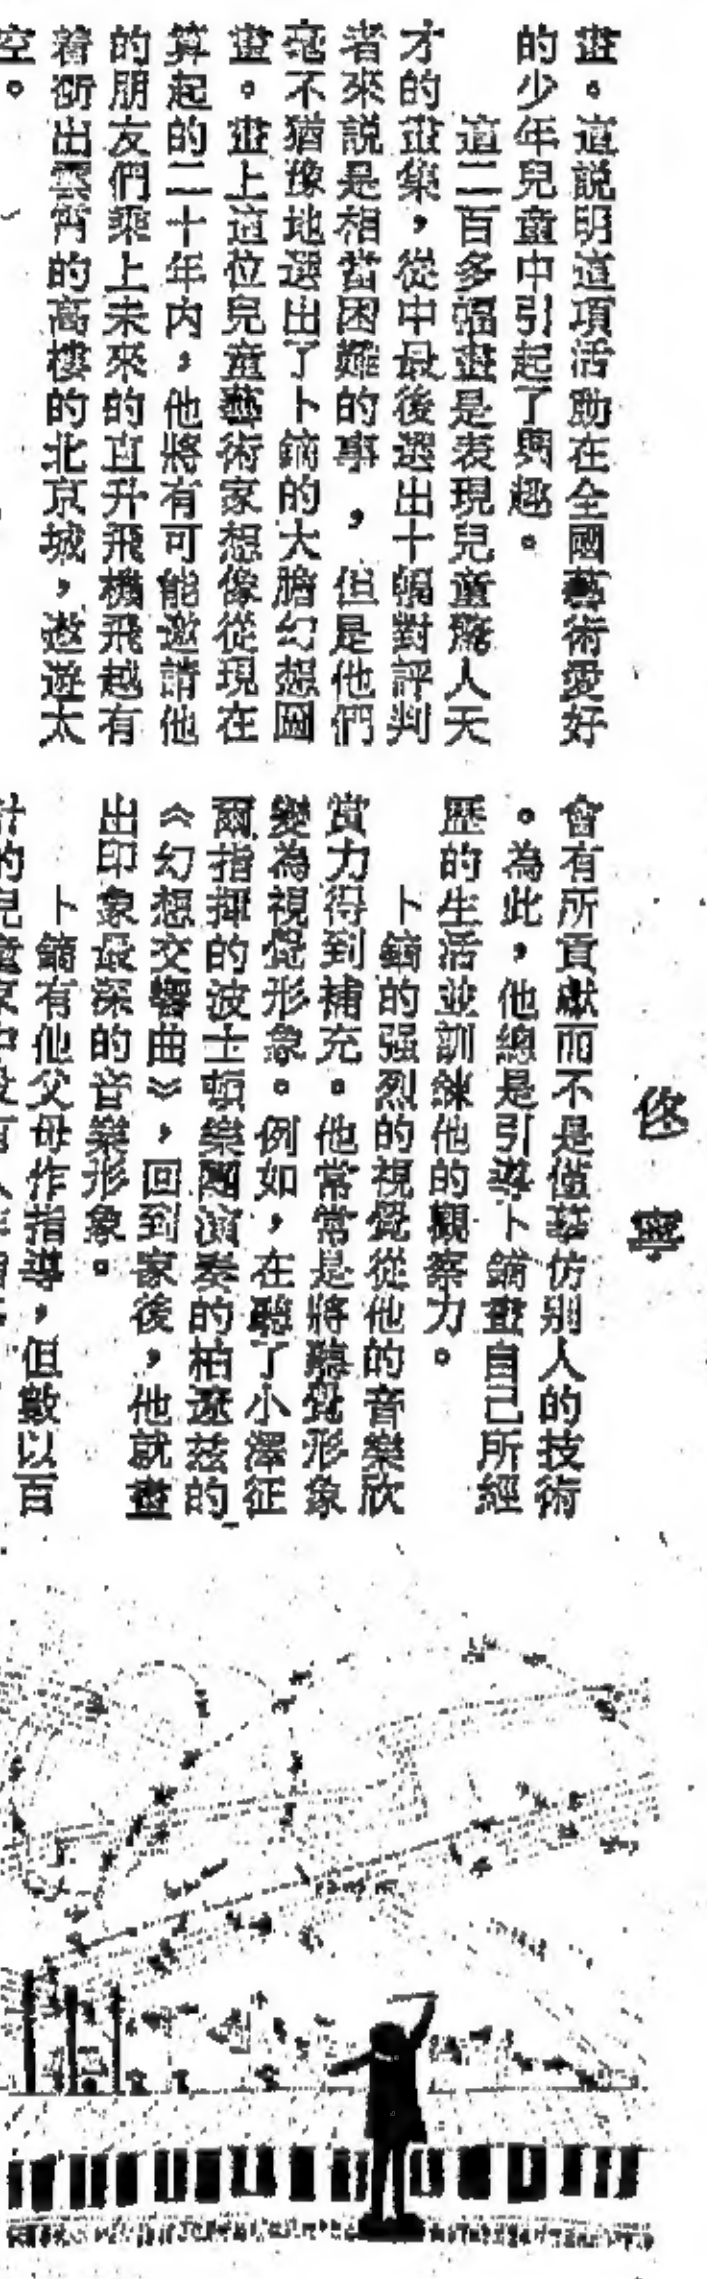 畫。這説明這項活動在全國藝術愛好
的少年兒童中引起了興趣。
這二百多幅畫是表現兒童驚人天
才的畫集，從中最後選出十幅對評判
者來説是相當困難的事，但是他們
毫不猶豫地選出了卜鏑的大膽幻想圖
畫。畫上這位兒童藝術家想像從現在
算起的二十年内，他將有可能邀請他
的朋友們乘上未來的直升飛機飛越有
着衝出雲霄的高樓的北京城，遨遊太
空。
寧
會有所貢獻而不是僅摹仿别人的技術
。為此，他總是引導卜鏑畫自己所經
歷的生活並訓練他的觀察力。
卜鏑的强烈的視覺從他的音樂欣
賞力得到補充。他常常是將聽覺形象
變為視覺形象。例如，在聽了小澤征
爾指揮的波士頓樂團演奏的柏遼兹的
《幻想交響曲》，回到家後，他就畫
出印象最深的音樂形象。
卜鏑有他父母作指導，但數以百
計的兒童